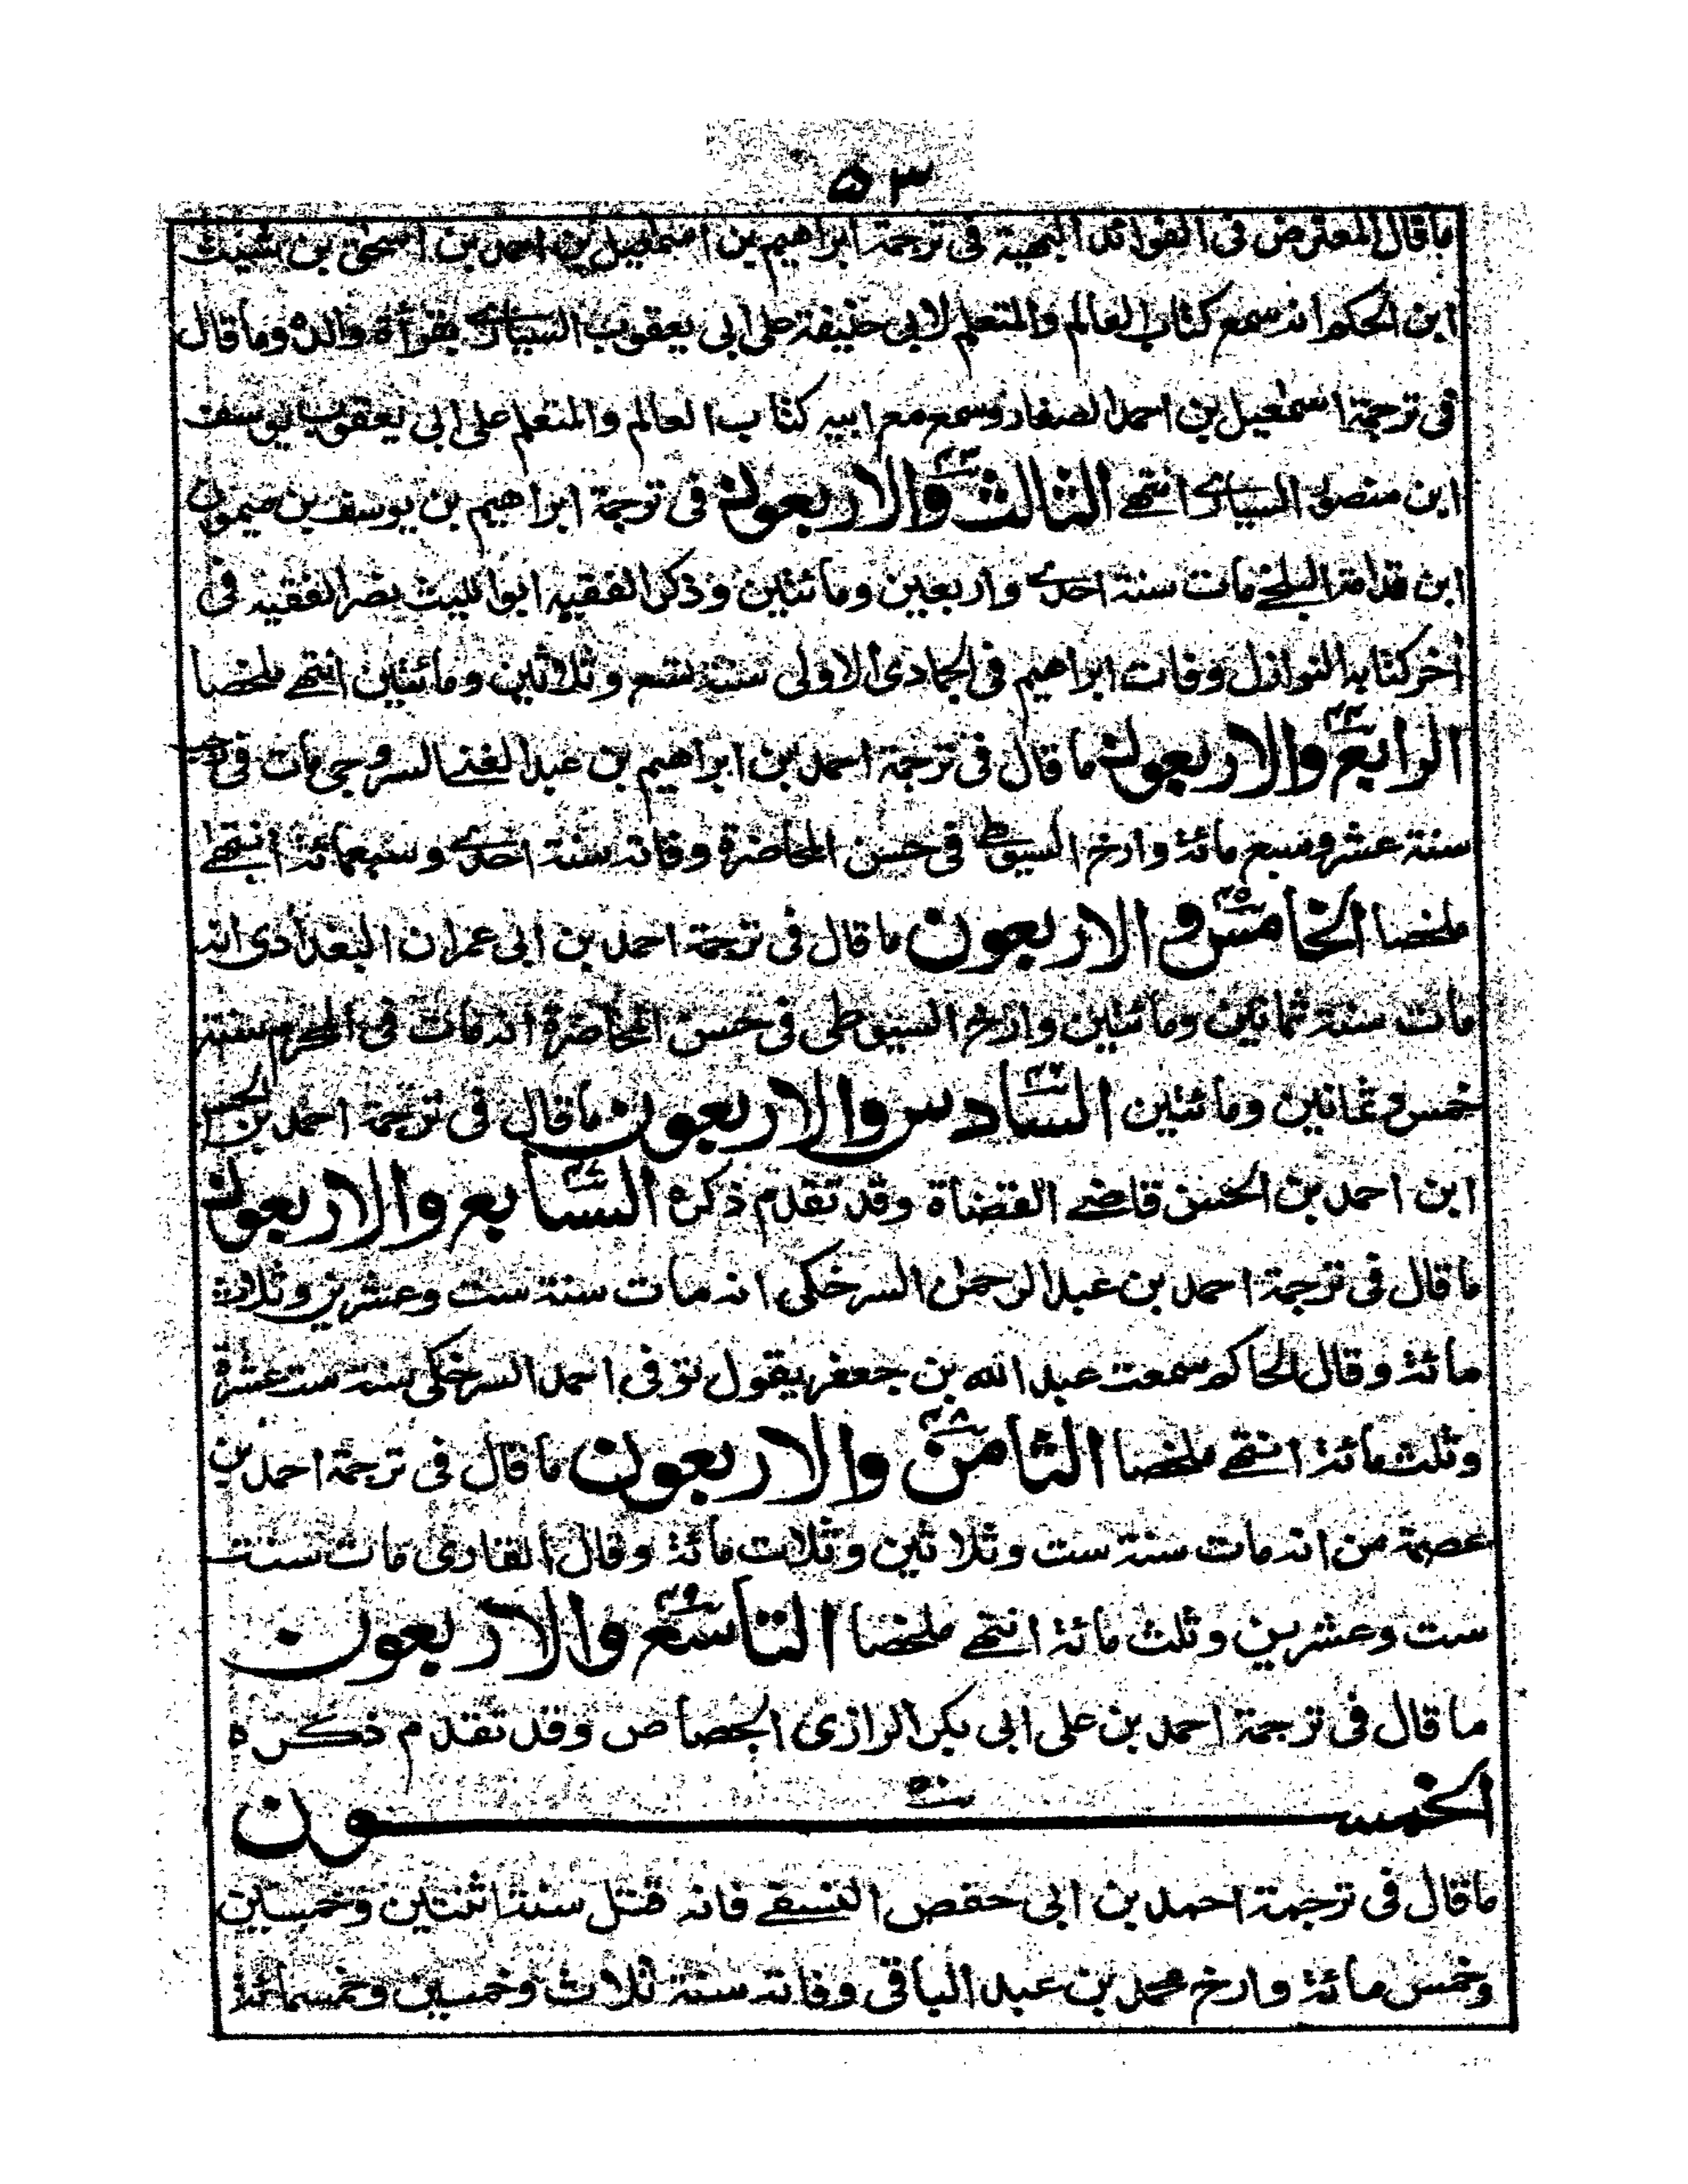 ۵۳
ما قال المعترض فى الفوائد البهية فى ترجمة ابراهيم بن اسمعيل بن احمد بن اسحق بن شيث
ابن الحكم انه سمع كتاب العالم والمتعلم لابى حنيفة على ابى يعقوب السيارى بقرأة والده وما قال
فى ترجمة اسمعيل بن احمد الصفار وسمع مع ابيه كتاب العالم والمتعلم على ابى يعقوب يوسف
ابن منصور السيارى انتهى الثالث والاربعون ۴۳ فى ترجمة ابراهيم بن يوسف بن ميمون
ابن قدامة البلخى مات سنة احدى واربعين ومائتين وذكر الفقيه ابو الليث نصر الفقيه فى
اخر كتابه النوازل وفات ابراهيم فى الجمادى الاولى سنة تسع وثلاثين ومائتين انتهى ملخصا
الرابع والاربعون ۴۴ ما قال فى ترجمة احمد بن ابراهيم بن عبد الغنى السروجى مات فى رجب
سنة عشر وسبع مائة وارخ السيوطى فى حسن المحاضرة وفاته سنة احدى وسبعمائة انتهى
ملخصا الخامس والاربعون ۴۵ ما قال فى ترجمة احمد بن ابى عمران البغدادى انه
مات سنة ثمانين ومائتين وارخ السيوطى فى حسن المحاضرة انه مات فى المحرم سنة
خمس وثمانين ومائتين السادس والاربعون ۴۶ ما قال فى ترجمة احمد بن الحسن
ابن احمد بن الحسن قاضى القضاة وقد تقدم ذكره السابع والاربعون ۴۷
ما قال فى ترجمة احمد بن عبد الرحمن السرخكى انه مات سنة ست وعشرين وثلاث
مائة وقال الحاكم سمعت عبد الله بن جعفر يقول توفى احمد السرخكى سنة ست عشرة
وثلث مائة انتهى ملخصا الثامن والاربعون ۴۸ ما قال فى ترجمة احمد بن
عصمة من انه مات سنة ست وثلاثين وثلاث مائة وقال القارى مات سنة
ست وعشرين وثلث مائة انتهى ملخصا التاسع والاربعون ۴۹
ما قال فى ترجمة احمد بن على ابى بكر الرازى الجصاص وقد تقدم ذكره
الخمسون ۵۰
ما قال فى ترجمة احمد بن ابى حفص النسفى فانه قتل سنة اثنتين وخمسين
وخمس مائة وارخ محمد بن عبد الباقى وفاته سنة ثلاث وخمسين وخمسمائة